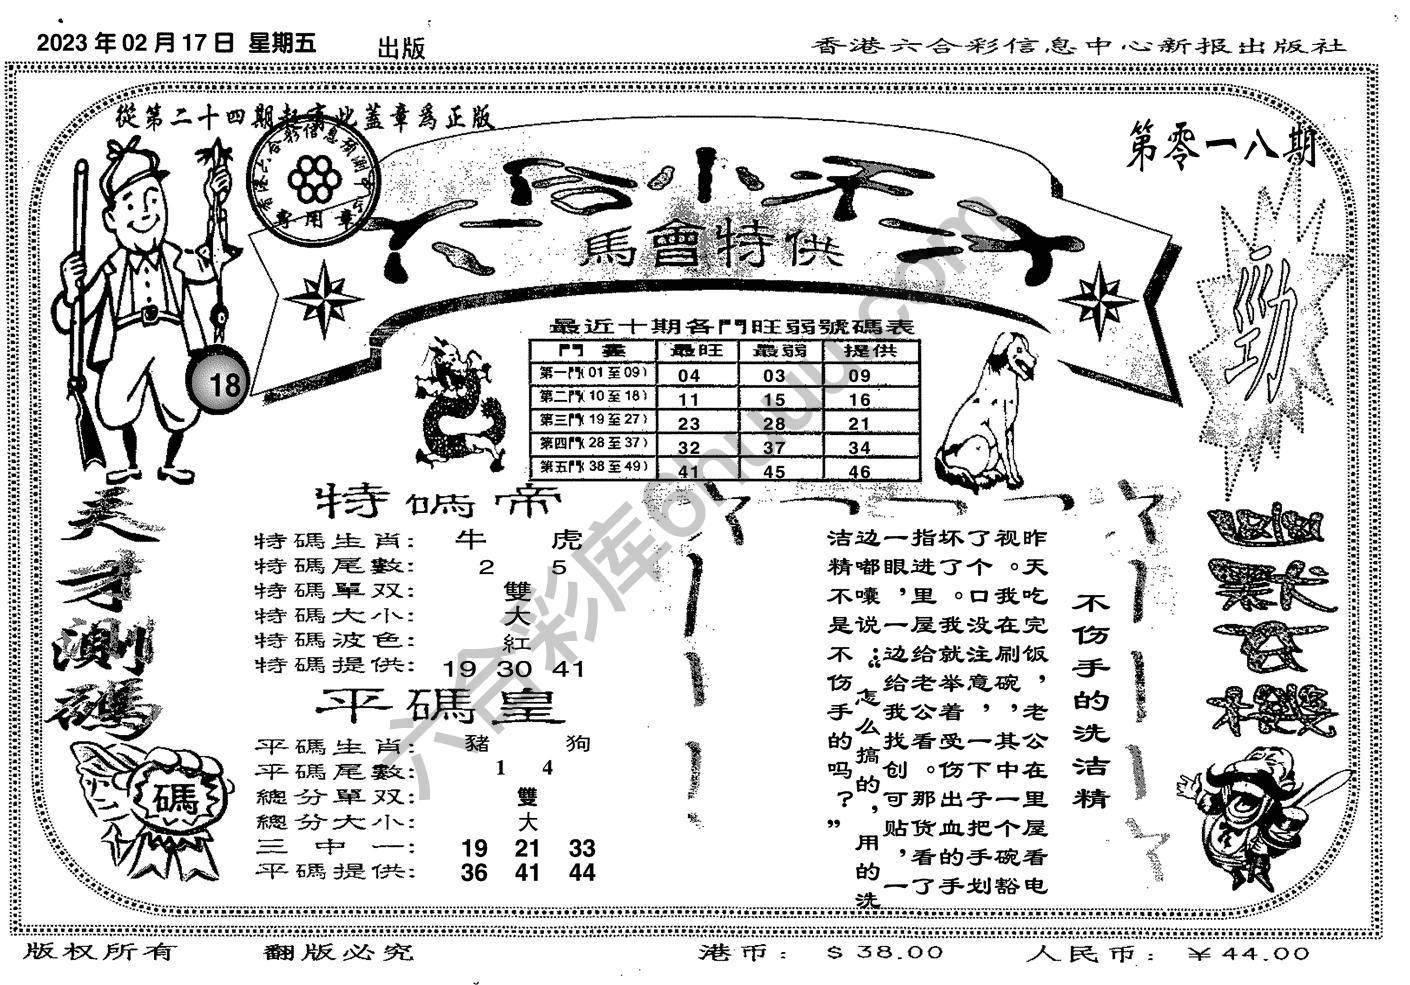 2023 年 02 月 17 日 星期五 出版
香港六合彩信息中心新报出版社
從第二十四期起憲此蓋章爲正版
第零一八期
專用章
六合小天王
馬會特供
勁
18
最近十期各門旺弱號碼表
門 最旺 最弱 提供
第一門(01至09) 04 03 09
第二門(10至18) 11 15 16
第三門(19至27) 23 28 21
第四門(28至37) 32 37 34
第五門(38至49) 41 45 46
天才測碼
特碼帝
特碼生肖: 牛 虎
特碼尾數: 2 5
特碼單双: 雙
特碼大小: 大
特碼波色: 紅
特碼提供: 19 30 41
平碼皇
平碼生肖: 豬 狗
平碼尾數: 1 4
總分單双: 雙
總分大小: 大
三中一: 19 21 33
平碼提供: 36 41 44
碼
不伤手的洗洁精
昨天吃完饭，老公在里屋看电
视。我在刷碗，其中一个碗豁
了个口没注意，一下子把手划
坏了。我就举着受伤出血的手
指进里屋给老公看。那货看了
一眼，一边给我找创可贴，一
边嘟嚷说：“怎么搞的，用的洗
洁精不是不伤手的吗？”
六合彩库6huuu.com
版权所有 翻版必究 港币: $ 38.00 人民币: ￥44.00